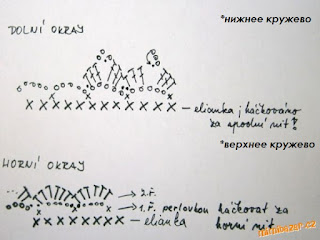 *нижнее кружево
DOLNÍ OKRAJ
elianka, háčkováno
za spodní nit!
*верхнее кружево
HORNÍ OKRAJ
2.Ř.
1.Ř. perlovkou háčkovat za
elianka horní nit